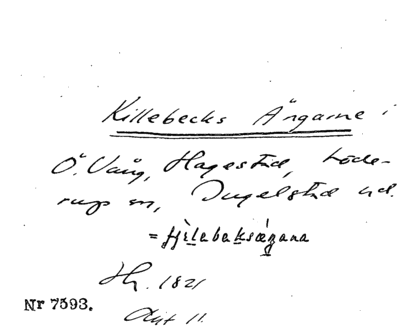 Killebecks Ängarne i
Ö. Vång, Hagestad, Löde-
rup sn, Ingelstad hd.
= fjìlebaksæ̀gana
Hr. 1821
Nr 7593.
Akt 11.